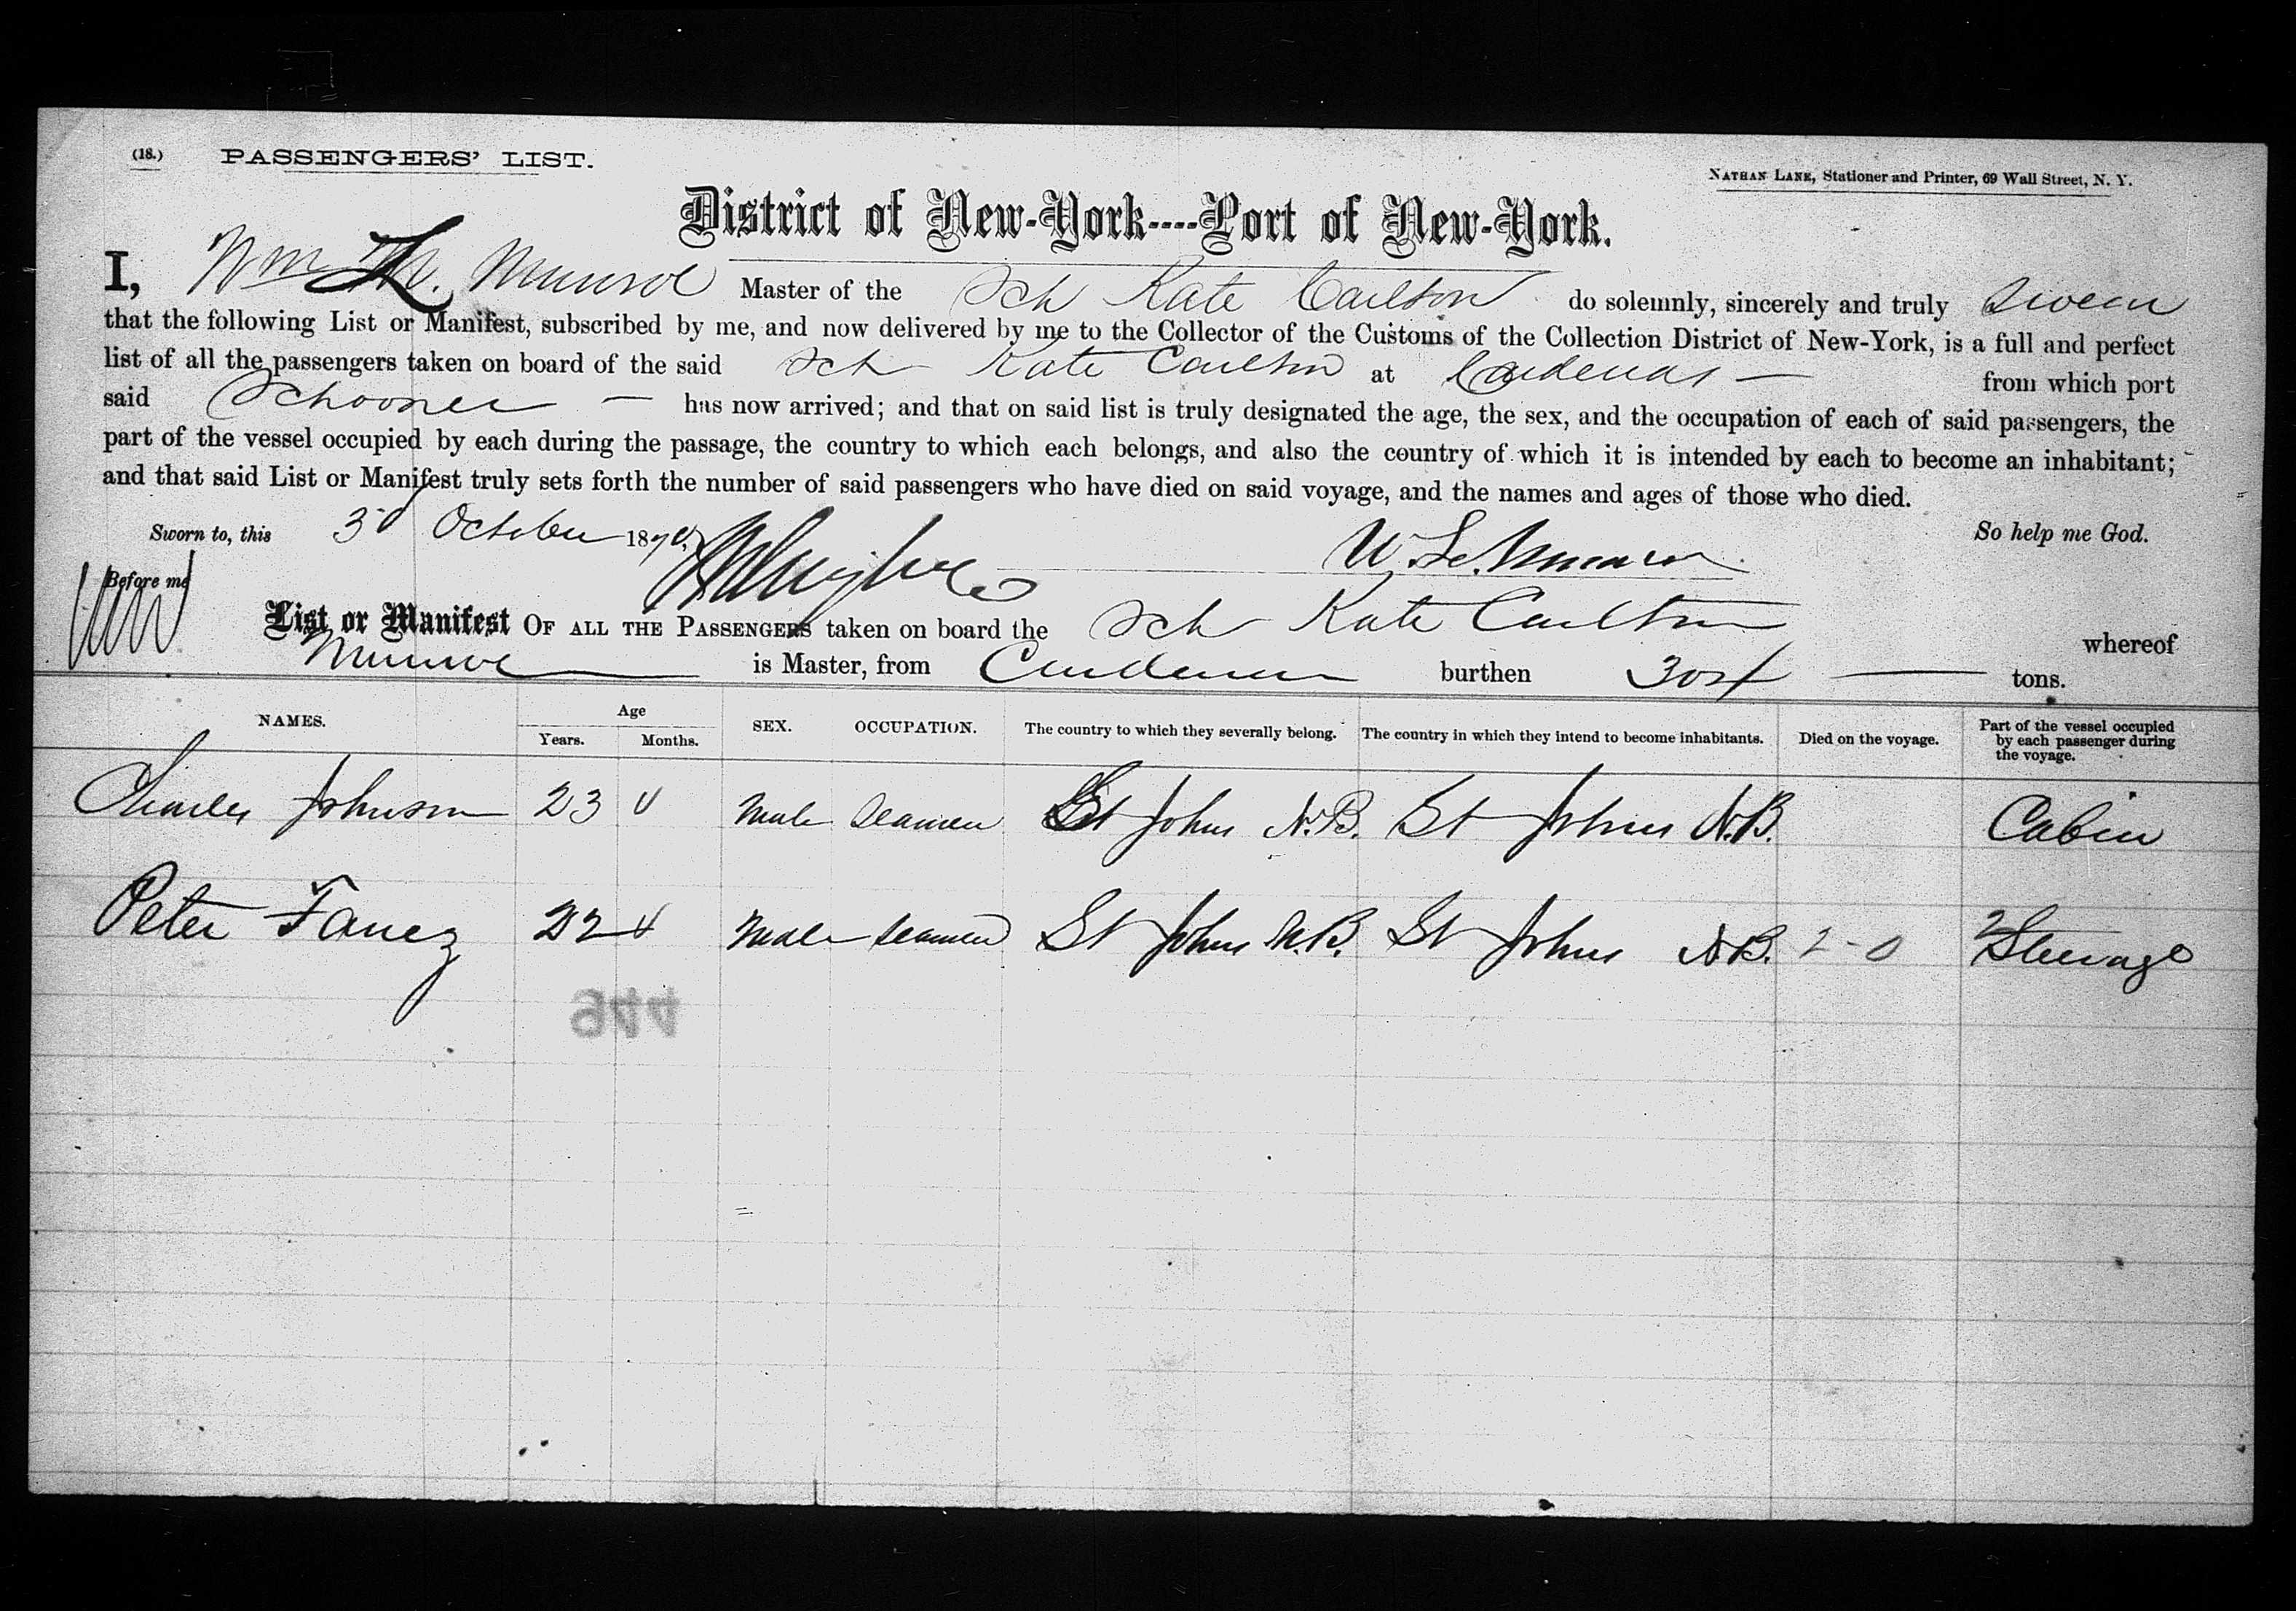 (18.) PASSENGERS' LIST.
NATHAN LANE, Stationer and Printer, 69 Wall Street, N. Y.
District of New-York----Port of New-York.
I, Wm L. Munroe Master of the Sch Kate Carlton do solemnly, sincerely and truly Swear
that the following List or Manifest, subscribed by me, and now delivered by me to the Collector of the Customs of the Collection District of New-York, is a full and perfect
list of all the passengers taken on board of the said Sch Kate Carlton at Cardenas — from which port
said Schooner — has now arrived; and that on said list is truly designated the age, the sex, and the occupation of each of said passengers, the
part of the vessel occupied by each during the passage, the country to which each belongs, and also the country of which it is intended by each to become an inhabitant;
and that said List or Manifest truly sets forth the number of said passengers who have died on said voyage, and the names and ages of those who died.
Sworn to, this October 187 So help me God.
Before me
List or Manifest OF ALL THE PASSENGERS taken on board the Sch Kate Carlton whereof
Munroe is Master, from Cardenas burthen tons.
NAMES. Age Years. Months. SEX. OCCUPATION. The country to which they severally belong. The country in which they intend to become inhabitants. Died on the voyage. Part of the vessel occupied by each passenger during the voyage.
Charles Johnson 23 4 Male Seamen St Johns N.B. St Johns N.B. Cabin
Peter 22 4 Male Seamen St Johns N.B. St Johns N.B. 2-0 Steerage
944